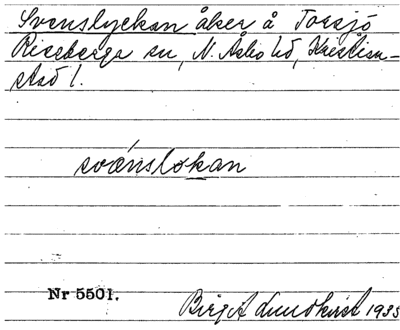 Svenslyckan åker å Torsjö
Riseberga sn, N. Åsbo hd, Kristian-
stad l.
svænslokan
Nr 5501.
Birgit Lundkvist 1935